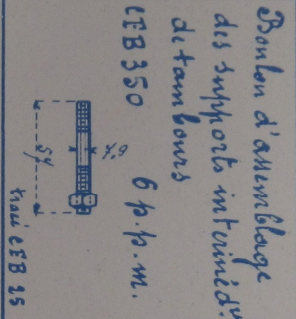 Boulon d'assemblage
des supports interméd.rs
de tambours
CEB 350 6 p.p.m.
54
7,9
tracé CEB 25